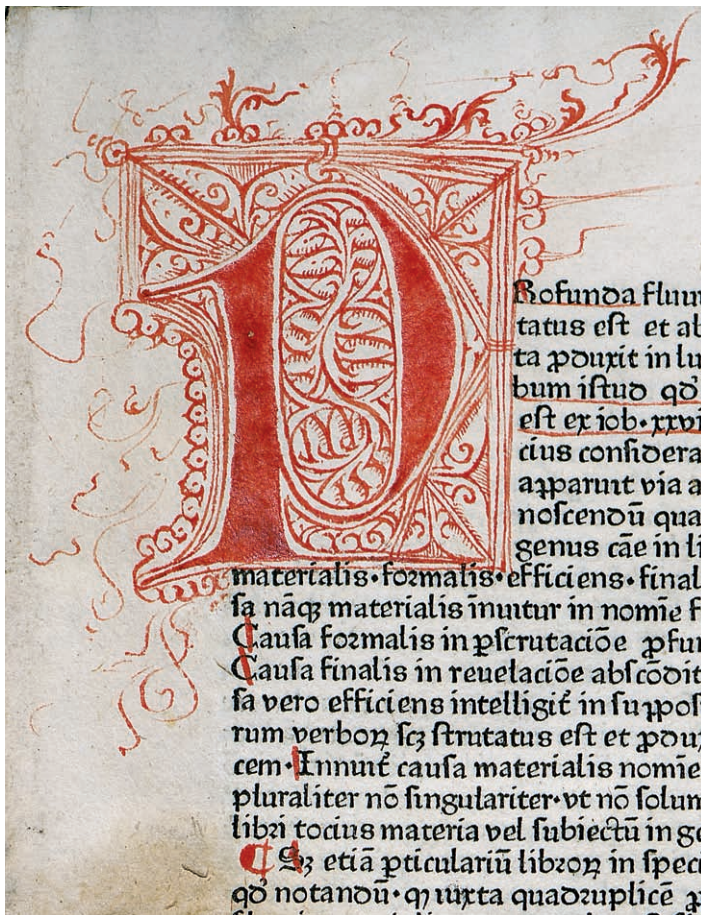 P
Rofunda fluui
tatus eſt et ab
ta ꝓduxit in lu
bum iſtud qđ
eſt ex iob·xxvi
cius conſidera
apparuit via a
noſcendū qua
genus cāe in li
materialis·foꝛmalis·efficiens·final
ſa nāqꝫ materialis īnuitur in nomīe f
Cauſa foꝛmalis in ꝑſcrutaciōe ꝓfun
Cauſa finalis in reuelaciōe abſcōdit
ſa vero efficiens intelligit᷑ in ſuppoſ
rum verboꝝ ſcꝫ ſtrutatus eſt et ꝓdux
cem·Innuit᷑ cauſa materialis nomīe
pluraliter nō ſingulariter·vt nō ſolum
libꝛi tocius materia vel ſubiectū in ge
Sꝫ etiā ꝑticulariū libꝛoꝝ in ſpeci
qđ notandū·ꝙ iuxta quadꝛuplicē